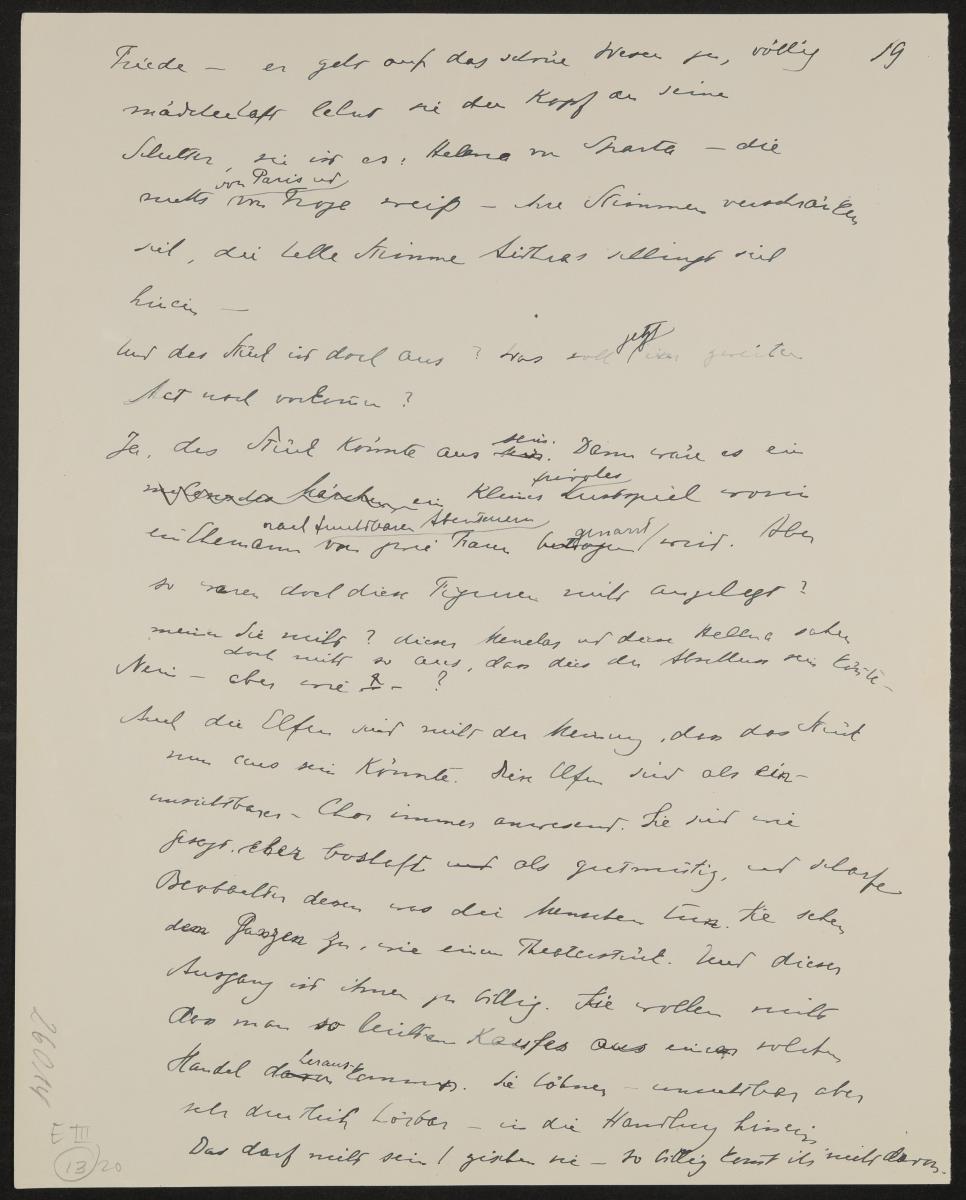 19
Friede — er geht auf das schöne Wesen zu, völlig
mädchenhaft lehnt sie den Kopf an seine
Schulter, sie ist es: Helena von Sparta — die
von Paris und
nichts von Troja weiß — ihre Stimmen verschränken
sich, die helle Stimme Aithras schlingt sich
hinein —
Und das Stück ist doch aus? Was soll jetzt im zweiten
Act noch vorkommen?
Ja, das Stück könnte aus sein. Dann wäre es ein
frivoles
ein kleines Lustspiel worin
nach furchtbaren Abenteuern genarrt
ein Ehemann von zwei Frauen betrogen wird. Aber
so waren doch diese Figuren nicht angelegt?
meinen Sie nicht? dieser Menelas und diese Helena sahen
doch nicht so aus, dass dies der Abschluss sein könnte —
Nein — aber wie — ?
Auch die Elfen sind nicht der Meinung, dass das Stück
nun aus sein könnte. Diese Elfen sind als ein
unsichtbarer Chor immer anwesend. Sie sind wie
gesagt eher boshaft als gutmütig, und scharfe
Beobachter dessen was die Menschen tun. Sie sehen
dem Ganzen zu, wie einem Theaterstück. Und dieser
Ausgang ist ihnen zu billig. Sie wollen nicht
dass man so leichten Kaufes aus einem solchen
Handel herauskomme. Sie höhnen — unsichtbar aber
sehr deutlich hörbar — in die Handlung hinein
Das darf nicht sein! zischen sie — so billig kommt ihr nicht davon.
26014
E III
13/20